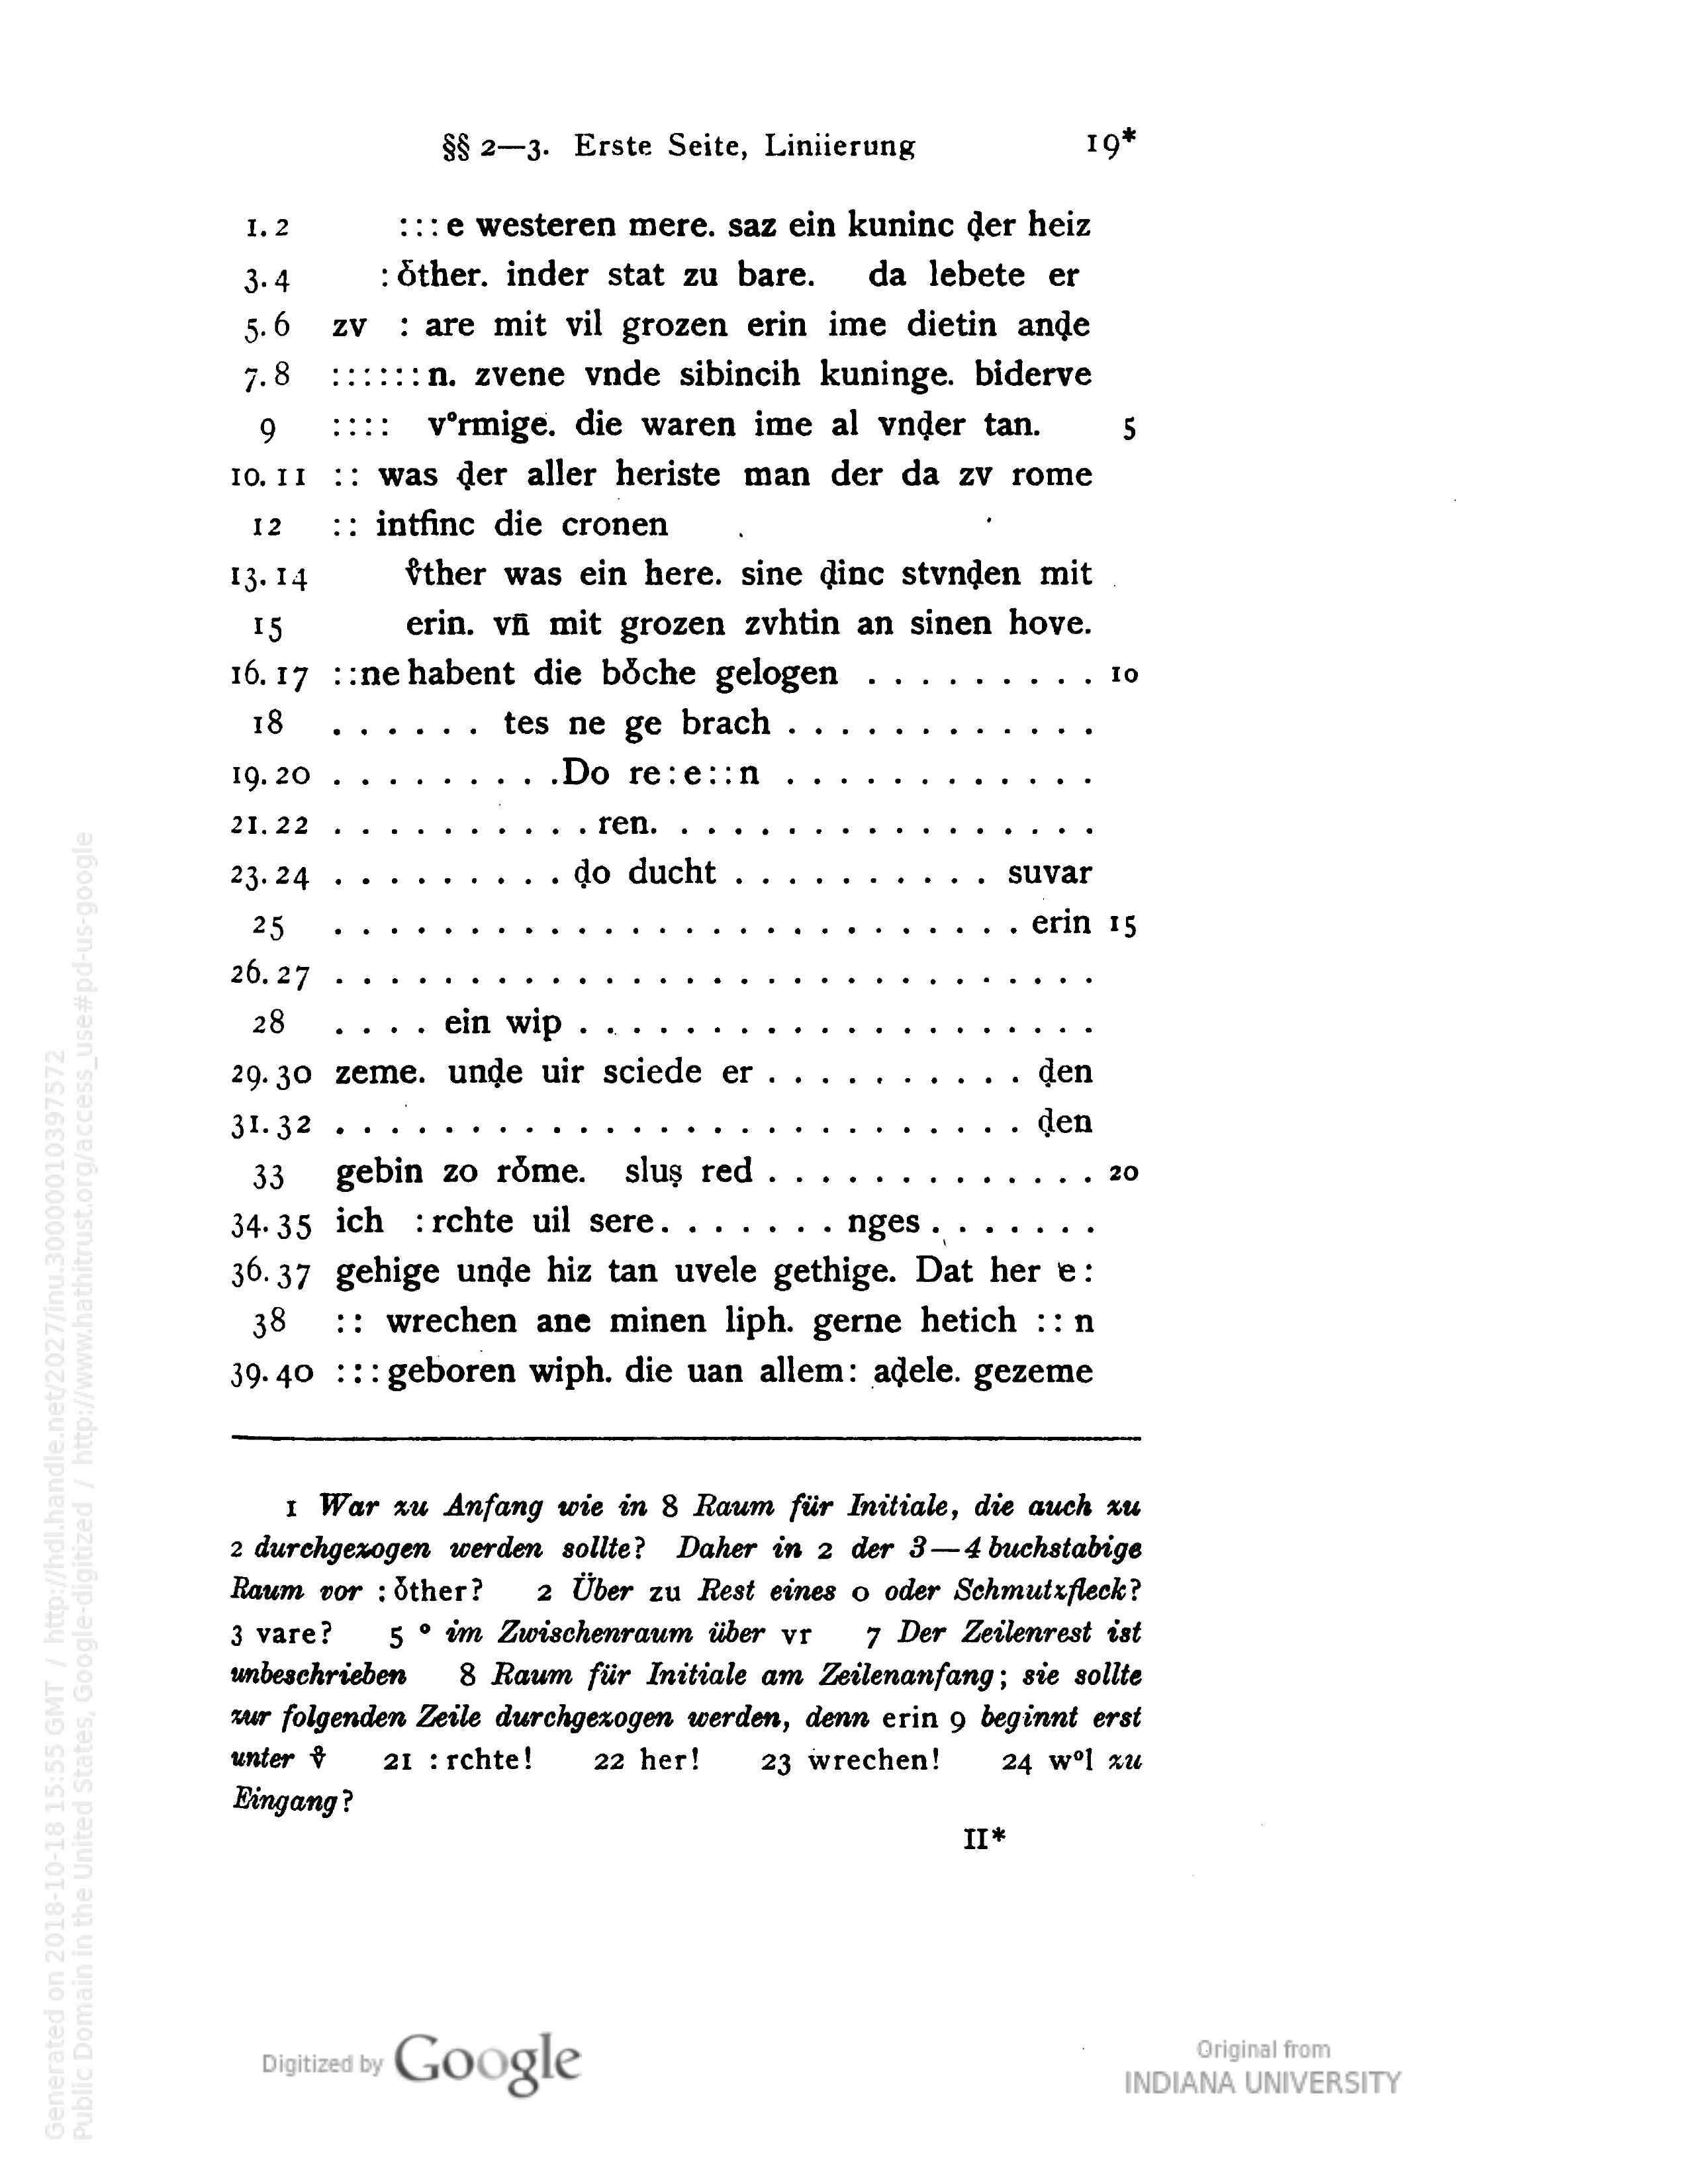 §§ 2—3. Erste Seite, Liniierung 19*
1. 2 :::e westeren mere. saz ein kuninc ḍer heiz
3. 4 :oͮther. inder stat zu bare. da lebete er
5. 6 zv : are mit vil grozen erin ime dietin anḍe
7. 8 ::::::n. zvene vnde sibincih kuninge. biderve
9 :::: v°rmige. die waren ime al vnḍer tan. 5
10. 11 :: was ḍer aller heriste man der da zv rome
12 :: intfinc die cronen
13. 14 vͦther was ein here. sine ḍinc stvnḍen mit
15 erin. vn̄ mit grozen zvhtin an sinen hove.
16. 17 ::ne habent die boͮche gelogen . . . . . . . . . 10
18 . . . . . . tes ne ge brach . . . . . . . . . . . .
19. 20 . . . . . . . . .Do re:e::n . . . . . . . . . . . .
21. 22 . . . . . . . . . . ren. . . . . . . . . . . . . . . . .
23. 24 . . . . . . . . . ḍo ducht . . . . . . . . . . suvar
25 . . . . . . . . . . . . . . . . . . . . . . . . . . erin 15
26. 27 . . . . . . . . . . . . . . . . . . . . . . . . . . . . .
28 . . . . ein wip . . . . . . . . . . . . . . . . . . . .
29. 30 zeme. unḍe uir sciede er . . . . . . . . . . ḍen
31. 32 . . . . . . . . . . . . . . . . . . . . . . . . . . ḍen
33 gebin zo roͮme. sluṣ red . . . . . . . . . . . . . 20
34. 35 ich :rchte uil sere. . . . . . . nges . . . . . . .
36. 37 gehige unḍe hiz tan uvele gethige. Dat her e:
38 :: wrechen ane minen liph. gerne hetich :: n
39. 40 :::geboren wiph. die uan allem: aḍele. gezeme
1 War zu Anfang wie in 8 Raum für Initiale, die auch zu
2 durchgezogen werden sollte? Daher in 2 der 3—4 buchstabige
Raum vor :oͮther? 2 Über zu Rest eines o oder Schmutzfleck?
3 vare? 5 ° im Zwischenraum über vr 7 Der Zeilenrest ist
unbeschrieben 8 Raum für Initiale am Zeilenanfang; sie sollte
zur folgenden Zeile durchgezogen werden, denn erin 9 beginnt erst
unter vͦ 21 :rchte! 22 her! 23 wrechen! 24 w°l zu
Eingang?
II*
Digitized by Google
Original from
INDIANA UNIVERSITY
Generated on 2018-10-18 15:55 GMT / http://hdl.handle.net/2027/inu.30000010397572
Public Domain in the United States, Google-digitized / http://www.hathitrust.org/access_use#pd-us-google